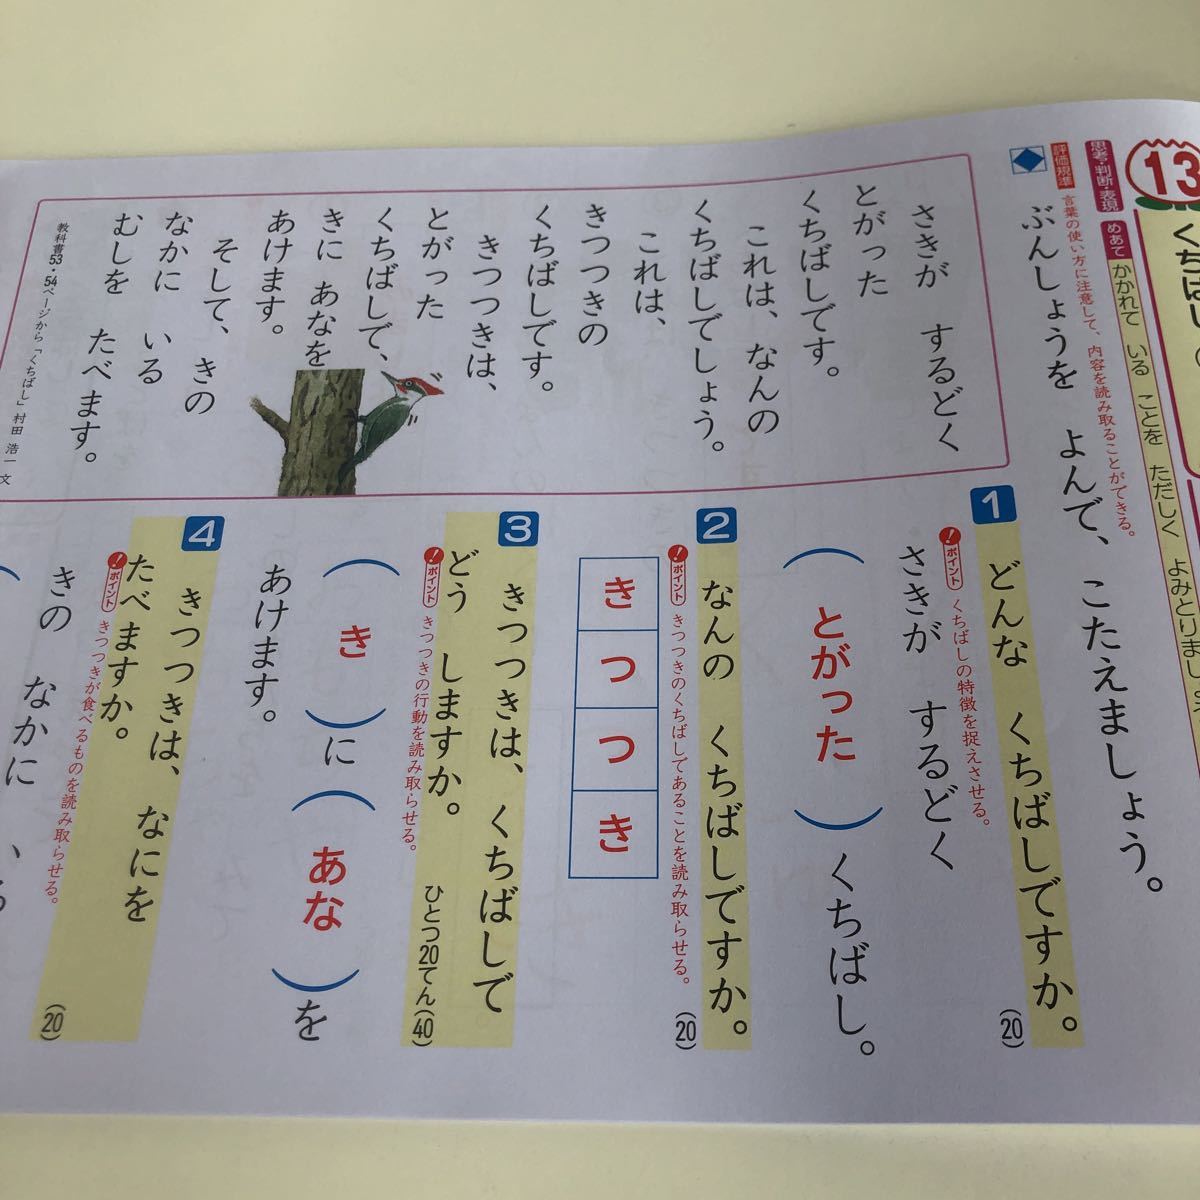 13
くちばし
思考・判断・表現
めあて かかれて いる ことを ただしく よみとりましょう
評価規準 言葉の使い方に注意して、内容を読み取ることができる。
ぶんしょうを よんで、こたえましょう。
さきが するどく
とがった
くちばしです。
これは、なんの
くちばしでしょう。
これは、
きつつきの
くちばしです。
きつつきは、
とがった
くちばしで、
きに あなを
あけます。
そして、きの
なかに いる
むしを たべます。
教科書53・54ページから「くちばし」村田 浩一 文
1
どんな くちばしですか。
(20)
ポイント くちばしの特徴を捉えさせる。
さきが するどく
(とがった)くちばし。
2
なんの くちばしですか。
(20)
ポイント きつつきのくちばしであることを読み取らせる。
きつつき
3
きつつきは、くちばしで
どう しますか。
ひとつ20てん(40)
ポイント きつつきの行動を読み取らせる。
(き)に(あな)を
あけます。
4
きつつきは、なにを
たべますか。
(20)
ポイント きつつきが食べるものを読み取らせる。
きの なかに いる